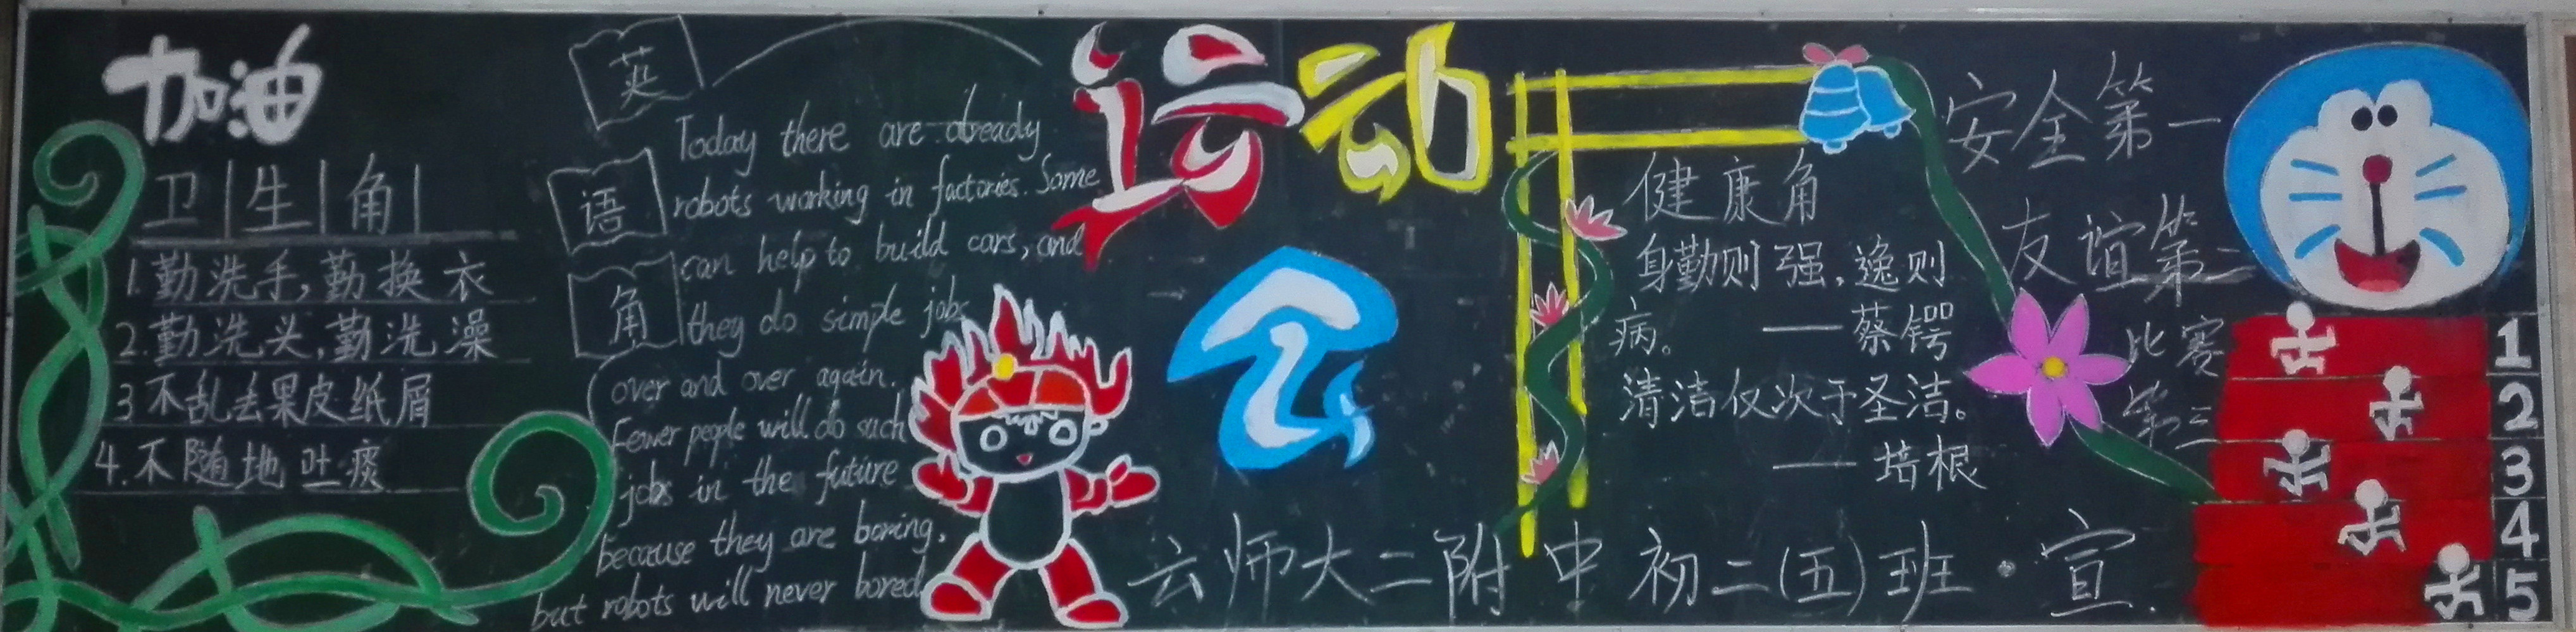 加油
卫生角
1.勤洗手,勤换衣
2.勤洗头,勤洗澡
3不乱丢果皮纸屑
4.不随地吐痰
英
语
角
Today there are already
robots working in factories. Some
can help to build cars, and
they do simple jobs
over and over again.
Fewer people will do such
jobs in the future
because they are boring,
but robots will never bored
运动
会
健康角
身勤则强,逸则
病。 ——蔡锷
清洁仅次于圣洁。
——培根
安全第一
友谊第二
比赛
第三
1
2
3
4
5
云师大二附中初二(五)班·宣.